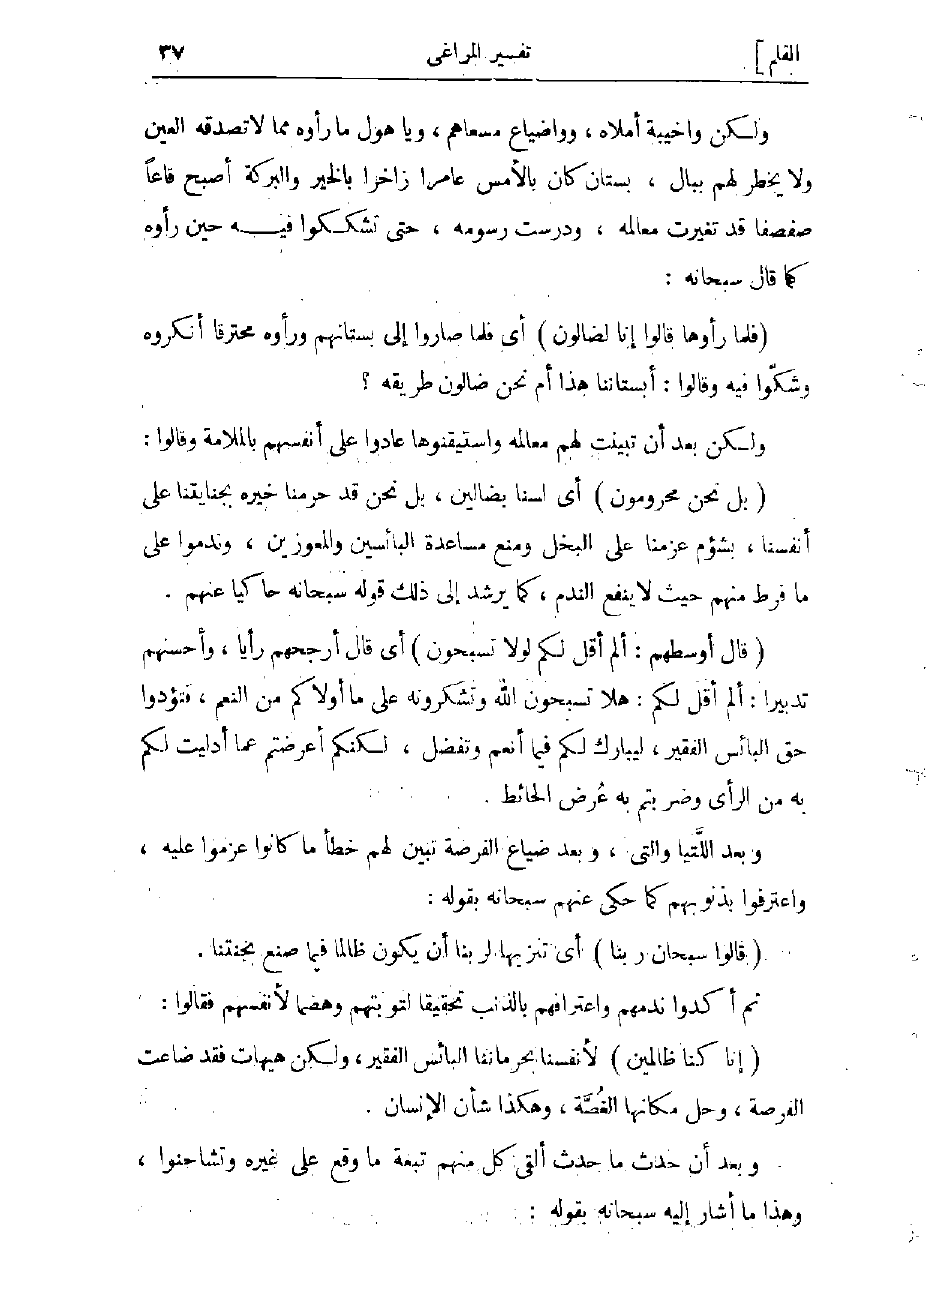 القلم]
تفسير المراغى
٣٧
ولكن واخيبة أملاه ، وواضياع مسعاهم ، ويا هول ما رأوه مما لا تصدقه العين
ولا يخطر لهم ببال ، بستان كان بالأمس عامرا زاخرا بالخير والبركة أصبح قاعاً
صفصفا قد تغيرت معالمه ، ودرست رسومه ، حتى تشككوا فيه حين رأوه
كما قال سبحانه :
(فلما رأوها قالوا إنا لضالون ) أى فلما صاروا إلى بستانهم ورأوه محترقا أنكروه
وشكّوا فيه وقالوا : أبستاننا هذا أم نحن ضالون طريقه ؟
ولكن بعد أن تبينت لهم معالمه واستيقنوها عادوا على أنفسهم بالملامة وقالوا :
( بل نحن محرومون ) أى لسنا بضالين ، بل نحن قد حرمنا خيره بجنايتنا على
أنفسنا ، بشؤم عزمنا على البخل ومنع مساعدة البائسين والمعوزين ، وندموا على
ما فرط منهم حيث لا ينفع الندم ، كما يرشد إلى ذلك قوله سبحانه حاكيا عنهم .
( قال أوسطهم : ألم أقل لكم لولا تسبحون ) أى قال أرجحهم رأيا ، وأحسنهم
تدبيرا : ألم أقل لكم : هلا تسبحون الله وتشكرونه على ما أولاكم من النعم ، فتؤدوا
حق البائس الفقير ، ليبارك لكم فيما أنعم وتفضل ، لكنكم أعرضتم عما أدليت لكم
به من الرأى وضربتم به عُرض الحائط .
وبعد اللَّتيا والتى ، وبعد ضياع الفرصة تبين لهم خطأ ما كانوا عزموا عليه ،
واعترفوا بذنوبهم كما حكى عنهم سبحانه بقوله :
( قالوا سبحان ربنا ) أى تنزيها لربنا أن يكون ظالما فيما صنع بجنتنا .
ثم أكدوا ندمهم واعترافهم بالذنب تحقيقا لتوبتهم وهضما لأنفسهم فقالوا :
( إنا كنا ظالمين ) لأنفسنا بحرماننا البائس الفقير ، ولكن هيهات فقد ضاعت
الفرصة ، وحل مكانها الغُصَّة ، وهكذا شأن الإنسان .
وبعد أن حدث ما حدث ألقى كل منهم تبعة ما وقع على غيره وتشاحنوا ،
وهذا ما أشار إليه سبحانه بقوله :